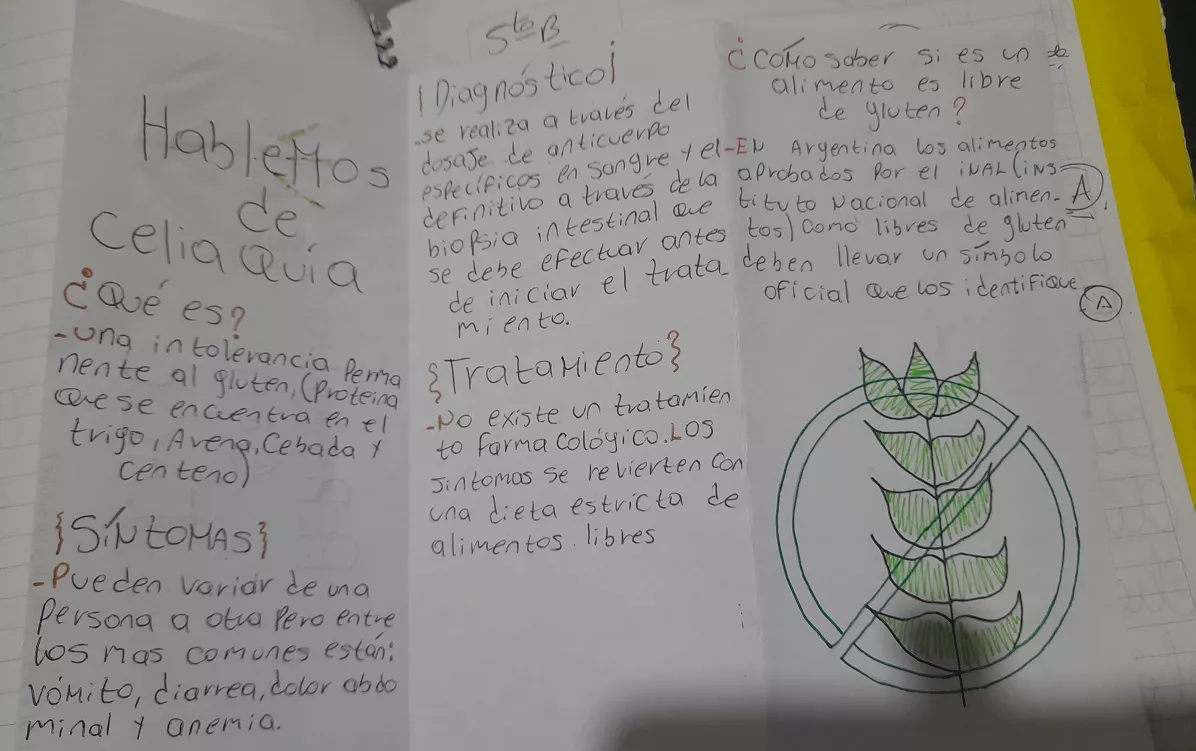 Hablemos
de
Celiaquía
¿Qué es?
-Una intolerancia Perma
nente al gluten, (Proteina
que se encuentra en el
trigo, Avena, Cebada y
centeno)
{SíNtOMAS}
-Pueden variar de una
Persona a otra Pero entre
los mas comunes están:
vómito, diarrea, dolor abdo
minal y anemia.
5to B
¡Diagnóstico!
-se realiza a través del
dosaje de anticuerpo
específicos en sangre y el
definitivo a través de la
biopsia intestinal que
se debe efectuar antes
de iniciar el trata-
miento.
{Tratamiento}
-No existe un tratamien
to farmacológico. Los
sintomas se revierten con
una dieta estricta de
alimentos libres
¿CÓMO saber si es un
alimento es libre
de gluten?
-EN Argentina los alimentos
aprobados Por el iNAL (iNS-
tituto Nacional de alimen- A
tos) como libres de gluten
deben llevar un símbolo
oficial que los identifique
A